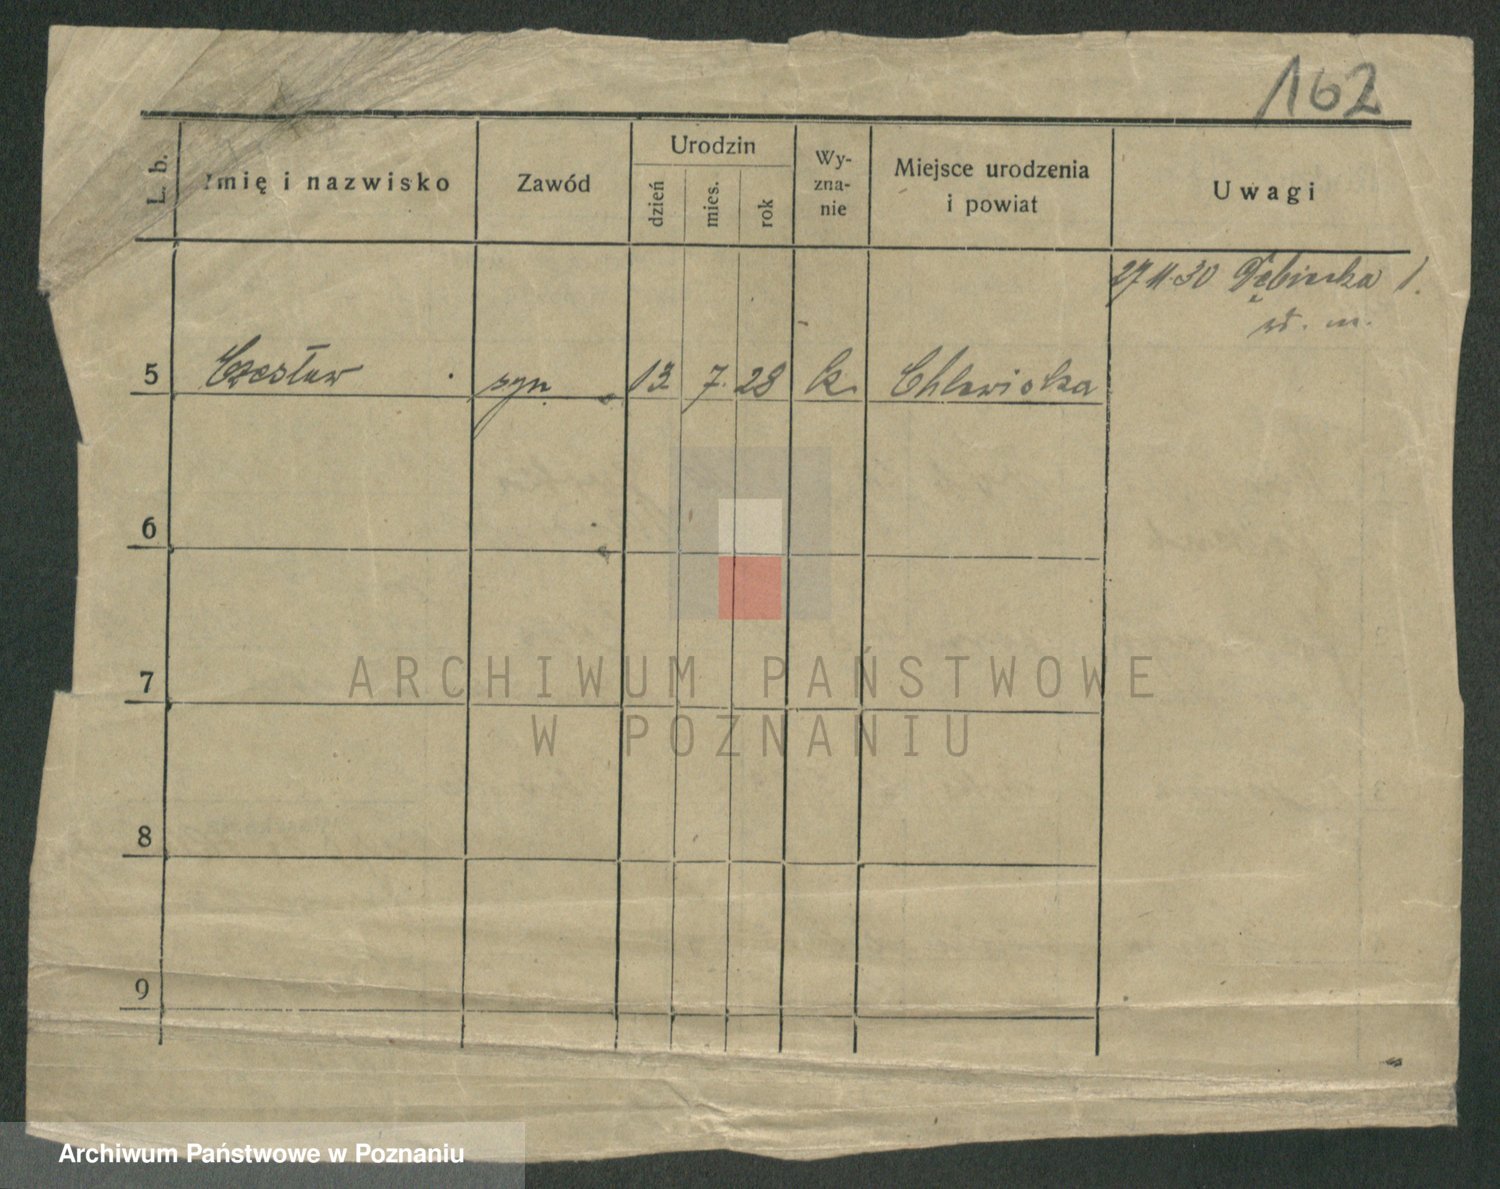 162
L. b.
Imię i nazwisko
Zawód
Urodzin
dzień
mies.
rok
Wy-
zna-
nie
Miejsce urodzenia
i powiat
Uwagi
27 11 30 Dębiecka 1.
5 Czesław syn 13 7. 28 k. Chlewiska
6
7
8
9
ARCHIWUM PAŃSTWOWE
W POZNANIU
Archiwum Państwowe w Poznaniu